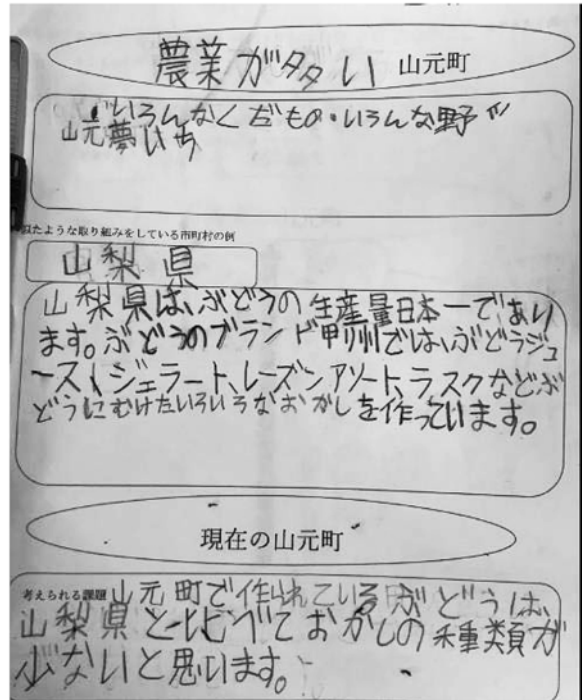 農業がタタい 山元町
いろんなくだもの・いろんな野
山元夢いち
似たような取り組みをしている市町村の例
山梨県
山梨県は、ぶどうの生産量日本一であり
ます。ぶどうのブランド甲州ではぶどうジュ
ースト、ジェラート、レーズンアソート、ラスクなどぶ
どうにむけたいろいろなおかしを作っています。
現在の山元町
考えられる課題 山元町で作られているぶどうは、
山梨県と比べておかしの種類が
少ないと思います。